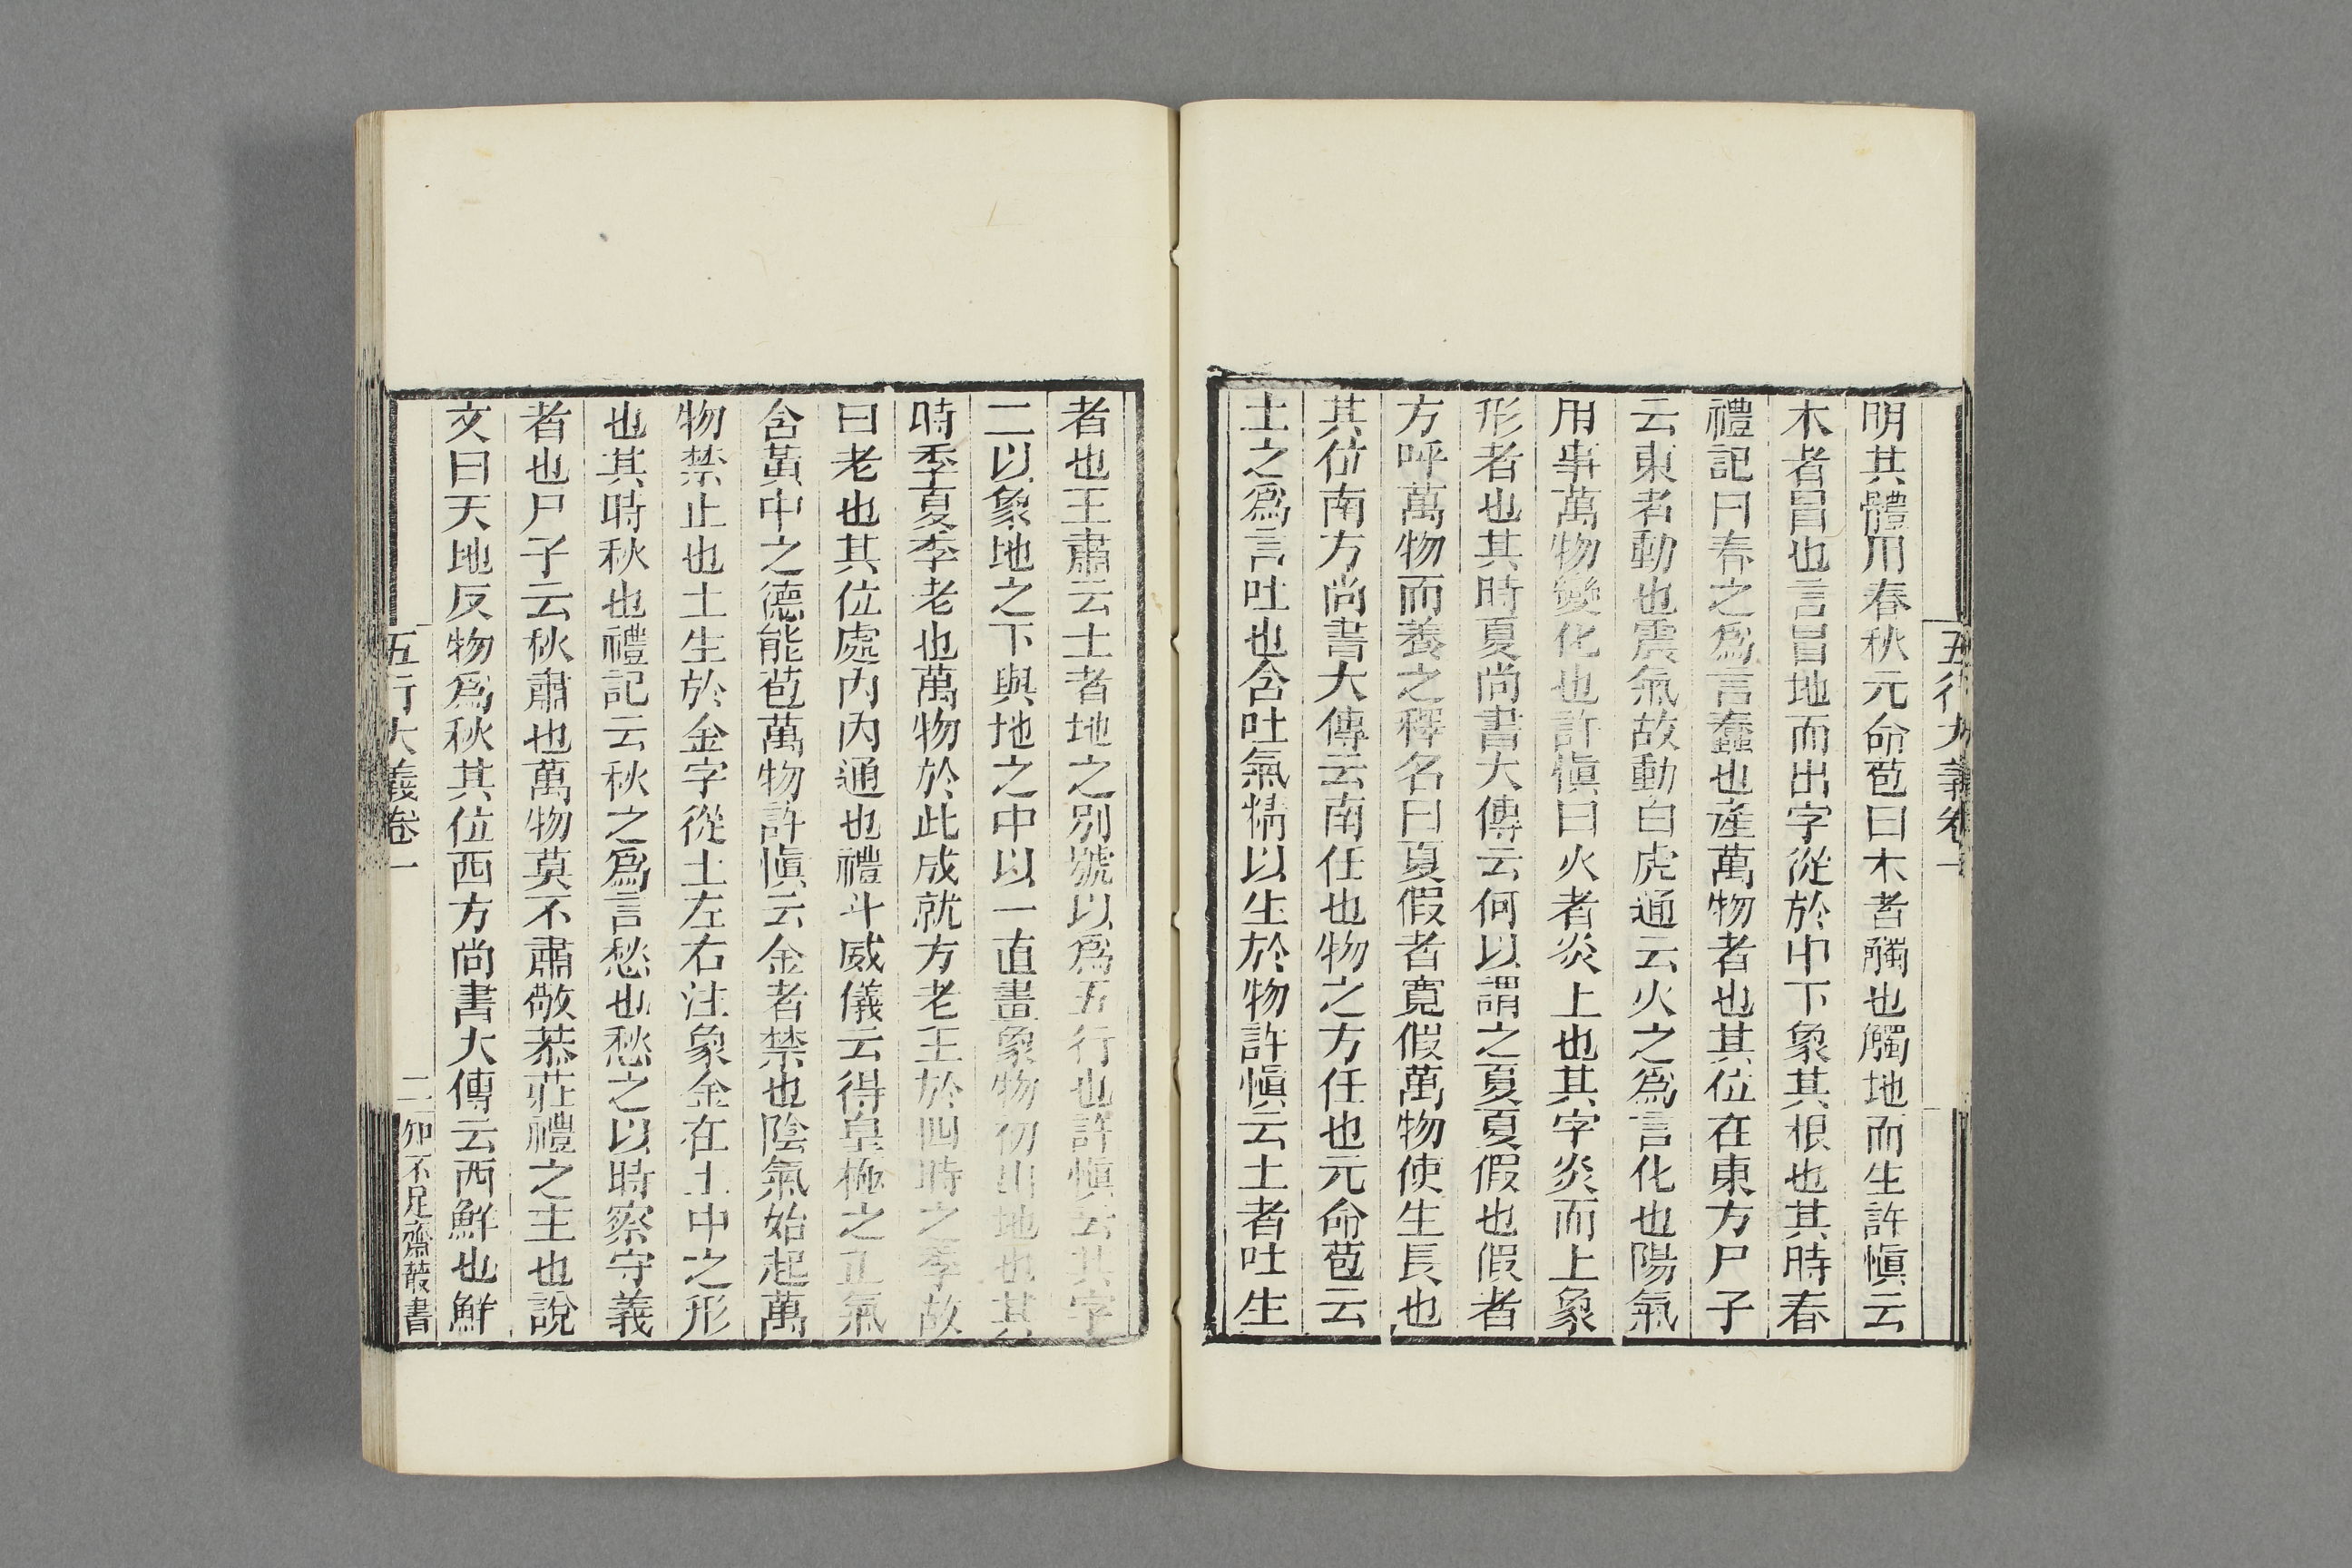 五行大義卷一
明其體用春秋元命苞曰木者觸也觸地而生許愼云
木者冒也言冒地而出字從於屮下象其根也其時春
禮記曰春之爲言蠢也產萬物者也其位在東方尸子
云東者動也震氣故動白虎通云火之爲言化也陽氣
用事萬物變化也許愼曰火者炎上也其字炎而上象
形者也其時夏尚書大傳云何以謂之夏夏假也假者
方呼萬物而養之釋名曰夏假者寬假萬物使生長也
其位南方尚書大傳云南任也物之方任也元命苞云
土之爲言吐也含吐氣精以生於物許愼云土者吐生
者也王肅云土者地之別號以爲五行也許愼云其字
二以象地之下與地之中以一直畫象物初出地也其
時季夏季老也萬物於此成就方老王於四時之季故
曰老也其位處內內通也禮斗威儀云得皇極之正氣
含黃中之德能苞萬物許愼云金者禁也陰氣始起萬
物禁止也土生於金字從土左右注象金在土中之形
也其時秋也禮記云秋之爲言愁也愁之以時察守義
者也尸子云秋肅也萬物莫不肅敬恭莊禮之主也說
文曰天地反物爲秋其位西方尚書大傳云西鮮也鮮
五行大義卷一
二
知不足齋叢書